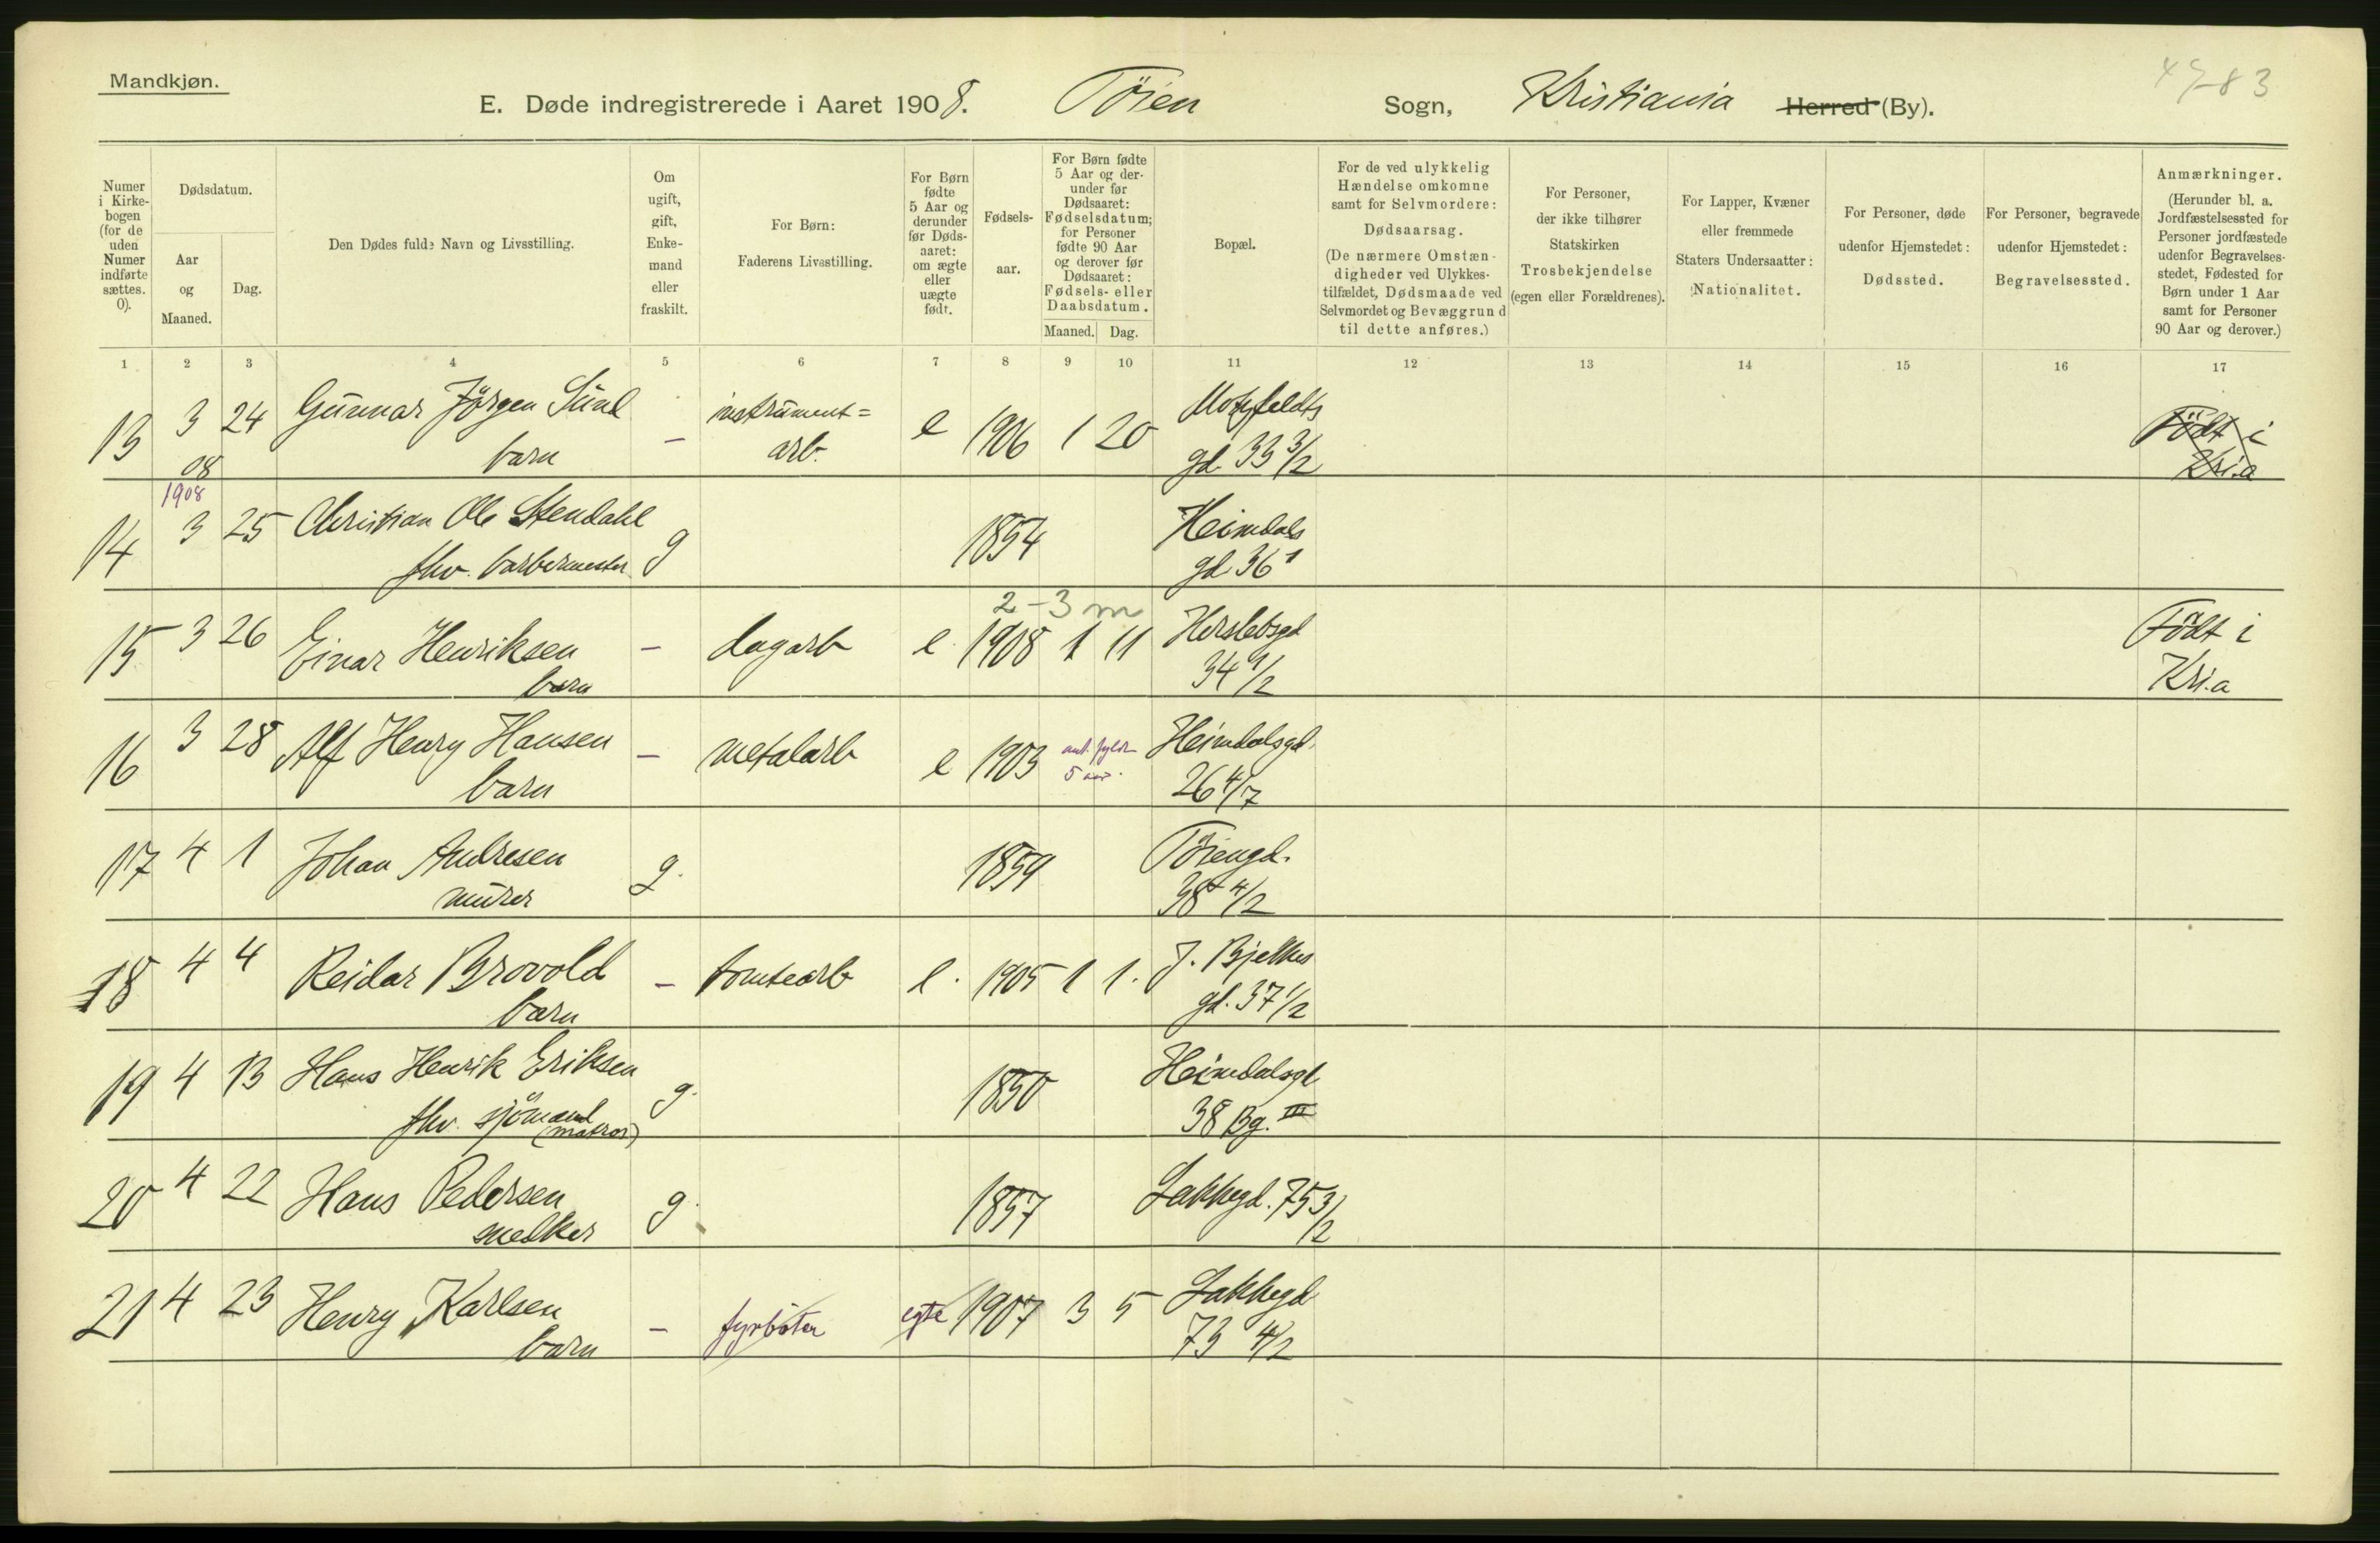 Mandkjøn.
E. Døde indregistrerede i Aaret 1908. Töien Sogn, Kristiania Herred (By).
Numer i Kirkebogen (for de uden Numer indførte sættes. 0).
Dødsdatum.
Aar og Maaned.
Dag.
Den Dødes fulde Navn og Livsstilling.
Om ugift, gift, Enkemand eller fraskilt.
For Børn: Faderens Livsstilling.
For Børn fødte 5 Aar og derunder før Dødsaaret: om ægte eller uægte født.
Fødselsaar.
For Børn fødte 5 Aar og derunder før Dødsaaret: Fødselsdatum; for Personer fødte 90 Aar og derover før Dødsaaret: Fødsels- eller Daabsdatum.
Maaned. Dag.
Bopæl.
For de ved ulykkelig Hændelse omkomne samt for Selvmordere: Dødsaarsag. (De nærmere Omstændigheder ved Ulykkestilfældet, Dødsmaade ved Selvmordet og Bevæggrund til dette anføres.)
For Personer, der ikke tilhører Statskirken Trosbekjendelse (egen eller Forældrenes).
For Lapper, Kvæner eller fremmede Staters Undersaatter: Nationalitet.
For Personer, døde udenfor Hjemstedet: Dødssted.
For Personer, begravede udenfor Hjemstedet: Begravelsessted.
Anmærkninger. (Herunder bl. a. Jordfæstelsessted for Personer jordfæstede udenfor Begravelsesstedet, Fødested for Børn under 1 Aar samt for Personer 90 Aar og derover.)
1 2 3 4 5 6 7 8 9 10 11 12 13 14 15 16 17
13 3 24 Gunnar Jörgen Sund - instrument= e 1906 1 20 Motzfeldts Födt i
08 barn arb. gd. 33 3/2 Kri.a
1908
14 3 25 Christian Ole Stendahl g 1854 Heimdals
fhv. barbermester gd 36 1
2-3 m
15 3 26 Einar Henriksen - dagarb e. 1908 1 11 Herslebsgd Födt i
barn 34 4/2 Kri.a
16 3 28 Alf Henry Hansen - metalarb e 1903 ant. fyldt Heimdalsgd.
barn 5 aar. 26 4/7
17 4 1 Johan Andresen g. 1859 Töiengd.
murer 38 4/2
18 4 4 Reidar Brovold - tomtearb e. 1905 1 1. J. Bjelkes
barn gd. 37 1/2
19 4 13 Hans Henrik Eriksen g. 1850 Heimdalsgd
fhv. sjömand (matros) 38 Bg. III
20 4 22 Hans Pedersen g 1857 Lakkegd. 75 3/2
snedker
21 4 23 Henry Karlsen - fyrböter egte 1907 3 5 Lakkegd
barn 73 4/2